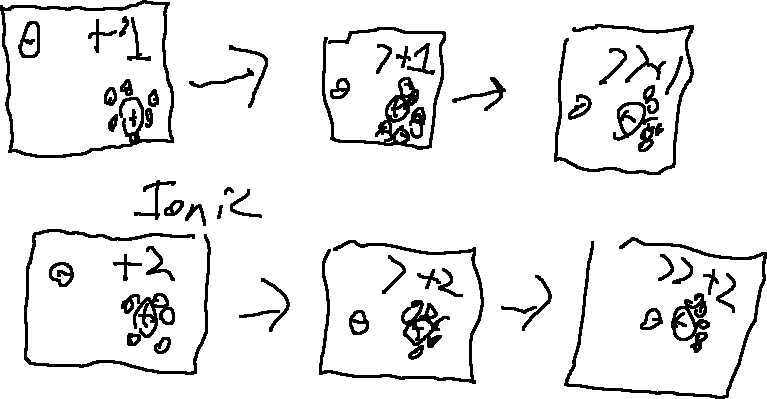 +1 >+1 >>+1
Ionic
+2 >+2 >>+2